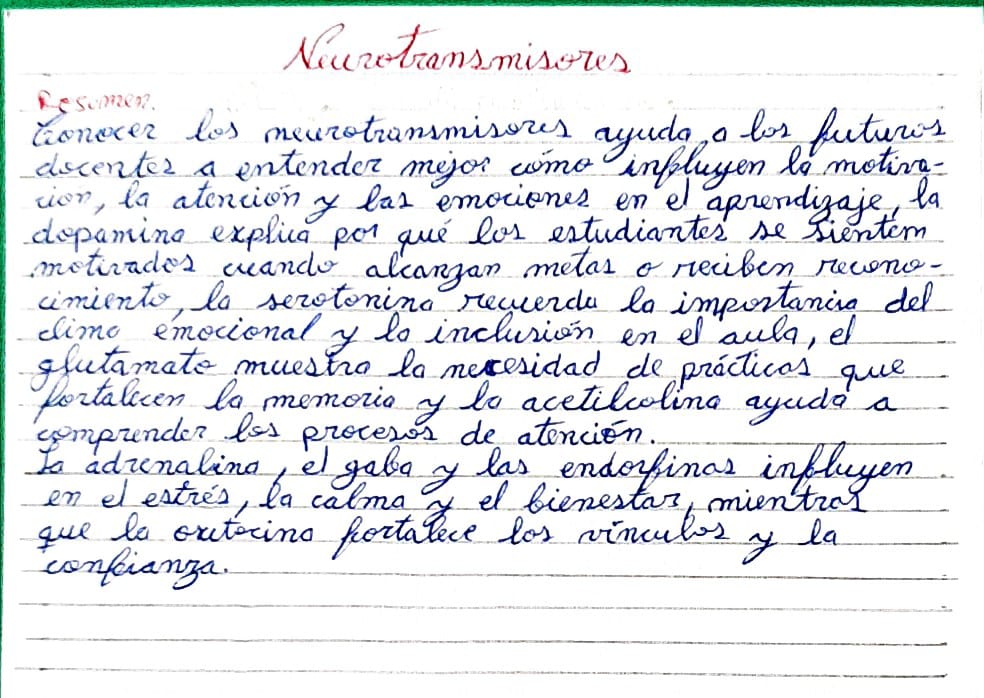 Neurotransmisores
Resumen.
Conocer los neurotransmisores ayuda a los futuros
docentes a entender mejor cómo influyen la motiva-
ción, la atención y las emociones en el aprendizaje, la
dopamina explica por qué los estudiantes se sienten
motivados cuando alcanzan metas o reciben recono-
cimiento, la serotonina recuerda la importancia del
clima emocional y la inclusión en el aula, el
glutamato muestra la necesidad de prácticas que
fortalecen la memoria y la acetilcolina ayuda a
comprender los procesos de atención.
La adrenalina, el gaba y las endorfinas influyen
en el estrés, la calma y el bienestar, mientras
que la oxitocina fortalece los vínculos y la
confianza.